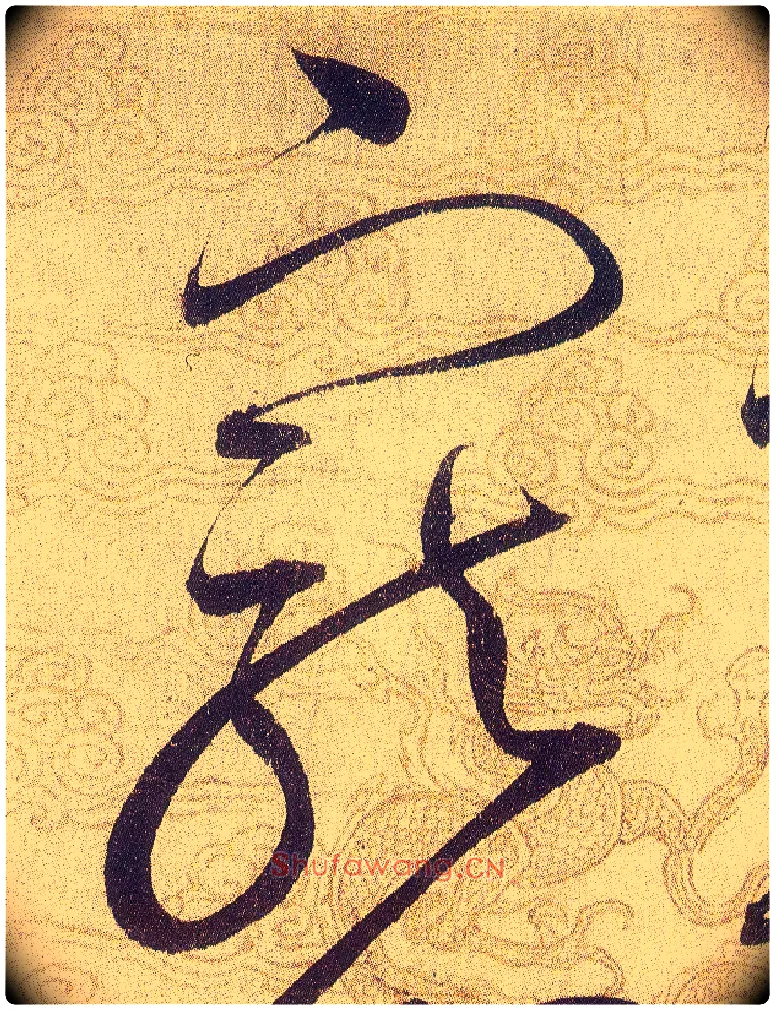 寵
Shufawang.CN